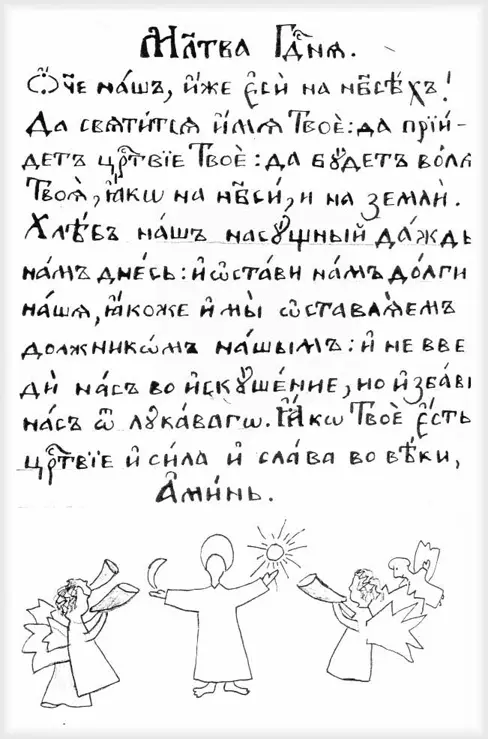 Мл҃тва Гдⷭ҇нѧ.
Ѻ҆́ч҃е на́шъ, и҆́же є҆сѝ на нб҃сѣ́хъ!
Да свѧти́тсѧ и҆́мѧ Твоѐ: да прїи́-
детъ црⷭ҇твїе Твоѐ: да бꙋ́детъ во́лѧ
Твоѧ̀, ꙗ҆́кѡ на нб҃сѝ, и на землѝ.
Хлѣ́бъ на́шъ насꙋ́щный да́ждь
на́мъ дне́сь: и҆ ѡ҆ста́ви на́мъ до́лги
на́шѧ, ꙗ҆́коже и҆ мы̀ ѡ҆ставлѧ́емъ
должникѡ́мъ на́шымъ: и҆ не вве
дѝ на́съ во и҆скꙋше́ние, но и҆зба́ви
на́съ ѿ лꙋка́вагѡ. Ꙗ҆́кѡ Твоѐ є҆́сть
црⷭ҇твїе и҆ си́ла и҆ сла́ва во вѣ́ки,
А҆ми́нь.